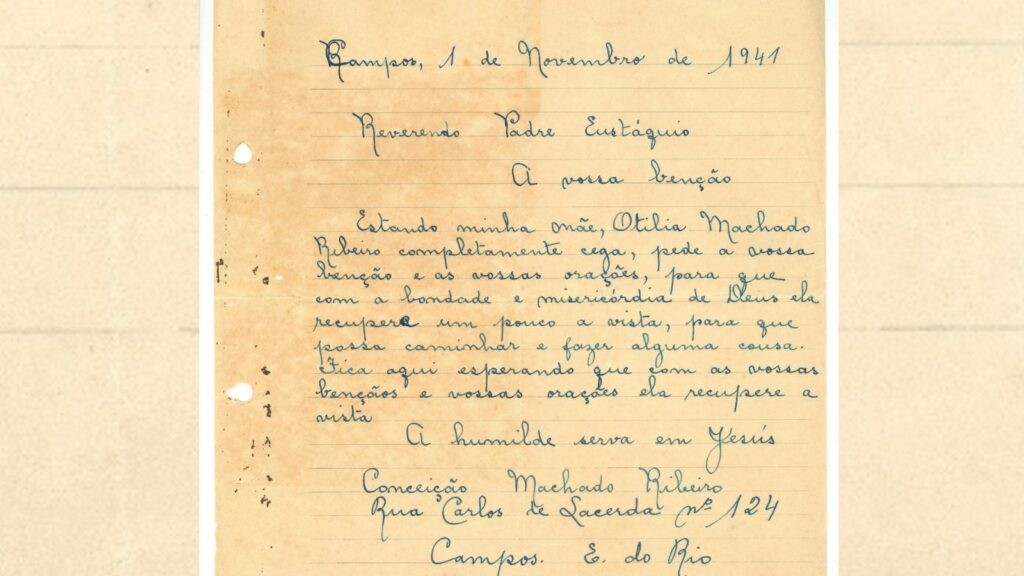 Campos, 1 de Novembro de 1941
Reverendo Padre Eustáquio
A vossa benção
Estando minha mãe, Otilia Machado
Ribeiro completamente cega, pede a vossa
benção e as vossas orações, para que
com a bondade e misericórdia de Deus ela
recupere um pouco a vista, para que
possa caminhar e fazer alguma cousa.
Fica aqui esperando que com as vossas
bençãos e vossas orações ela recupere a
vista
A humilde serva em Jesús
Conceição Machado Ribeiro
Rua Carlos de Lacerda nº 124
Campos. E. do Rio